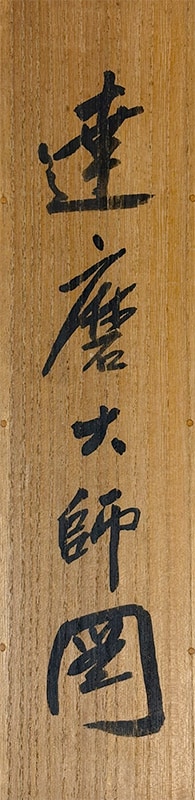 達磨大師図